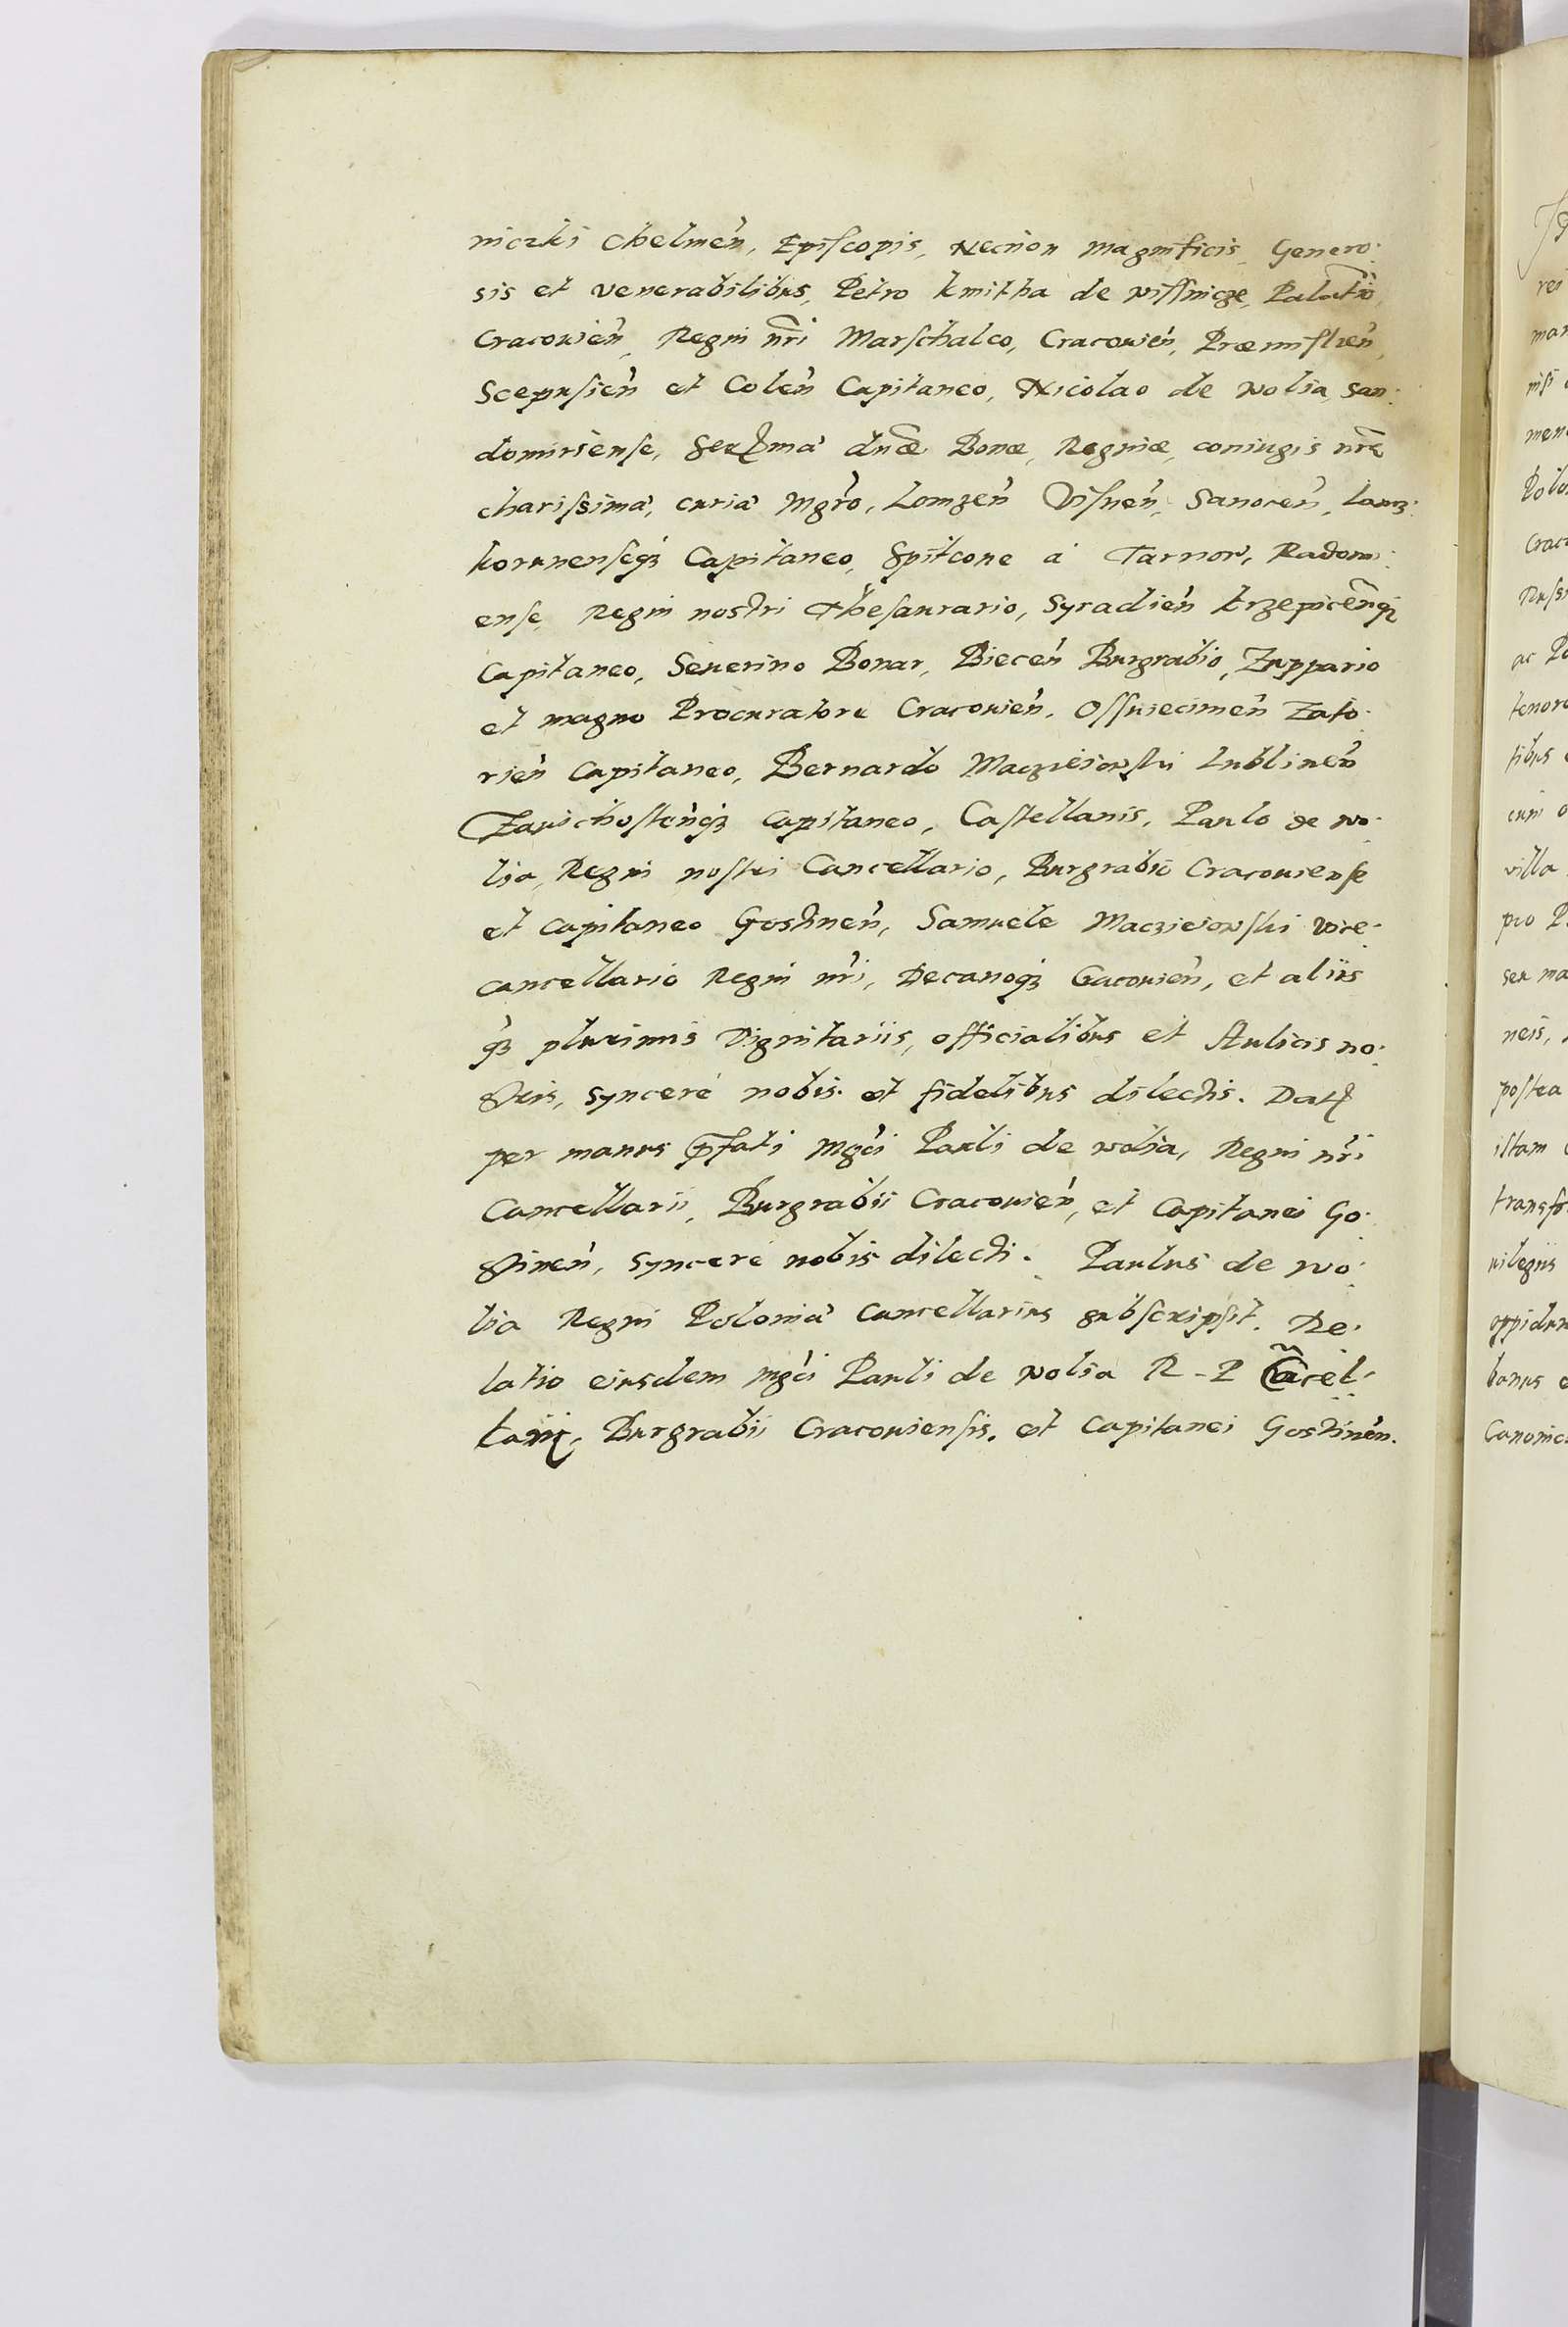 niczki Chelmen̄, Episcopis, Necnon Magnificis, Genero:
sis et venerabilibus, Petro kmitha de wissnicze, Palatīo
Cracouien̄, Regni nr̄i Marschalco, Cracouien̄, Præmislien̄,
Scepusien̄ et Colen̄ Capitaneo, Nicolao de wolia, San:
domiriense, Ser̄ma dn̄æ Bonæ, Reginæ, coniugis nr̄æ
charissima, curia Mgr̄o, Lomzen̄ Visnen̄, Sanocen̄, Lancz:
korunenseqꝫ Capitaneo, Spitcone à Tarnow, Radomi:
ense, Regni nostri Thesaurario, Syradien̄ krzepicen̄qꝫ
Capitaneo, Seuerino Bonar, Biecen̄ Burgrabio, Zuppario
et magno Procuratore Cracouien̄, Ossuiecimen̄ Zato:
rien̄ Capitaneo, Bernardo Macziejowski Lublinen̄
Zauichosten̄qꝫ Capitaneo, Castellanis, Paulo de wo:
lia, Regni nostri Cancellario, Burgrabio Cracouiense
et Capitaneo Gostinen̄, Samuele Macziejowski vice:
cancellario Regni nr̄i, Decanoqꝫ Cracouien̄, et aliis
qꝫ plurimis Dignitariis, officialibus et Aulicis no:
stris, syncerè nobis et fidelibus dilectis. Datꝭ
per manus p̄fati Mgc̄i Pauli de wolia, Regni nr̄i
Cancellarii, Burgrabii Cracouien̄, et Capitanei Go:
stinen̄, syncerè nobis dilecti. Paulus de wo:
lia Regni Polonia Cancellarius subscripsit. Re:
latio eiusdem Mgc̄i Pauli de wolia R - P Cācel:
larii, Burgrabii Cracouiensis, et Capitanei Gostinen̄.
rei
mar
nisi
men
Polo
Crac
Russi
ac Po
tenore
sibus
cum o
villa
pro P
seu ma
neis,
postea
istam
transf
uilegiis
oppidum
banus
Canonic